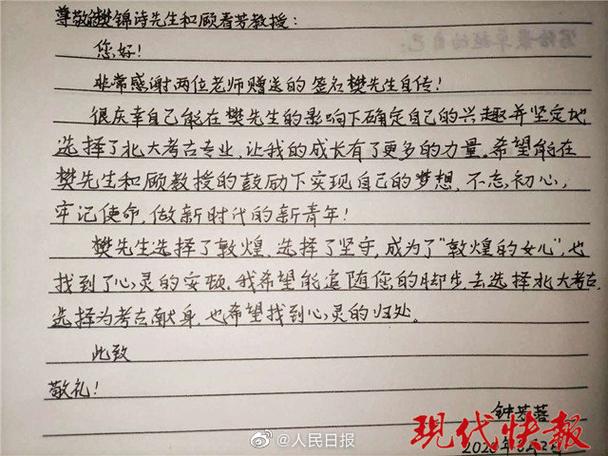 尊敬的樊锦诗先生和顾春芳教授：
您好！
非常感谢两位老师赠送的签名樊先生自传！
很庆幸自己能在樊先生的影响下确定自己的兴趣并坚定地
选择了北大考古专业，让我的成长有了更多的力量。希望能在
樊先生和顾教授的鼓励下实现自己的梦想，不忘初心，
牢记使命，做新时代的新青年！
樊先生选择了敦煌，选择了坚守，成为了“敦煌的女儿”，也
找到了心灵的安顿。我希望能追随您的脚步，去选择北大考古，
选择为考古献身，也希望找到心灵的归处。
此致
敬礼！
钟芳蓉
现代快报
@人民日报
2020年8月2日